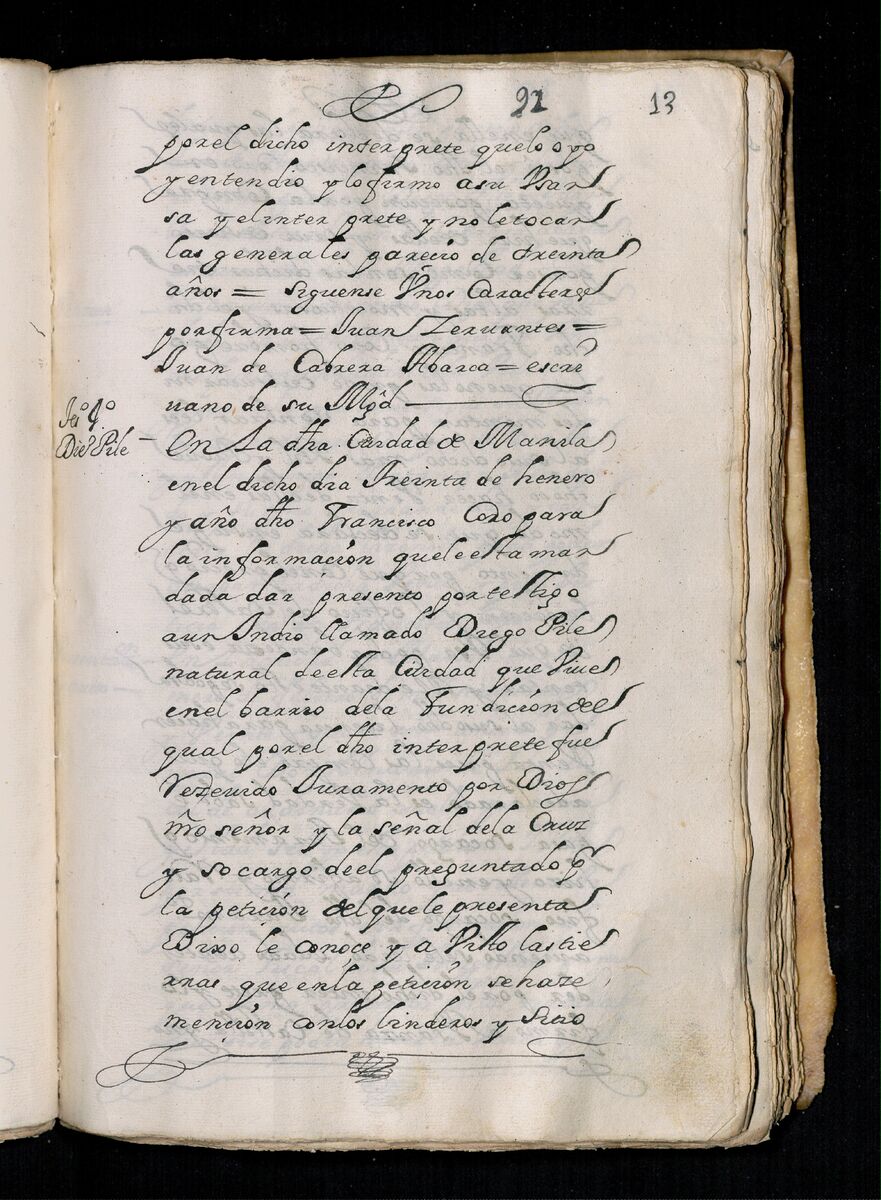 92 13
por el dicho interprete quelo oyo
y entendio y lo firmo a su Usan
sa y el inter prete y no le tocan
las generales parecio de treinta
años = siguense Vnos Caracteres
por firma = Juan Zervantes =
Juan de Cabrera Abarca = escri
uano de su Mgd
En La dha Ciudad de Manila
en el dicho dia Treinta de henero
y año dho Francisco Coro para
la información que le esta man
dada dar presento por testigo
a un Indio llamado Diego Pile
natural de esta Ciudad que Viue
en el barrio de la Fundición del
qual por el dho interprete fue
rezeuido Juramento por Dios
nro señor y la señal de la Cruz
y so cargo de el preguntado pr
la petición del que le presenta
Dixo le conoce y a Visto las tie
rras que en la petición se haze
mención con los linderos y Sitio
Diego Pile